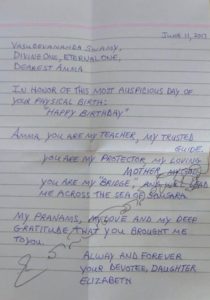 JUNE 11, 2017
VASUDEVANANDA SWAMY,
DIVINE ONE, ETERNAL ONE,
DEAREST AMMA
IN HONOR OF THIS MOST AUSPICIOUS DAY OF
YOUR PHYSICAL BIRTH:
"HAPPY BIRTHDAY"
AMMA YOU ARE MY TEACHER, MY TRUSTED
GUIDE.
YOU ARE MY PROTECTOR, MY LOVING
MOTHER,
YOU ARE MY "BRIDGE," AND WILL LEAD
ME ACROSS THE SEA OF SAMSARA.
MY PRANAMS, MY LOVE AND MY DEEP
GRATITUDE THAT YOU BROUGHT ME
TO YOU.
ALWAY AND FOREVER
YOUR DEVOTEE, DAUGHTER
ELIZABETH